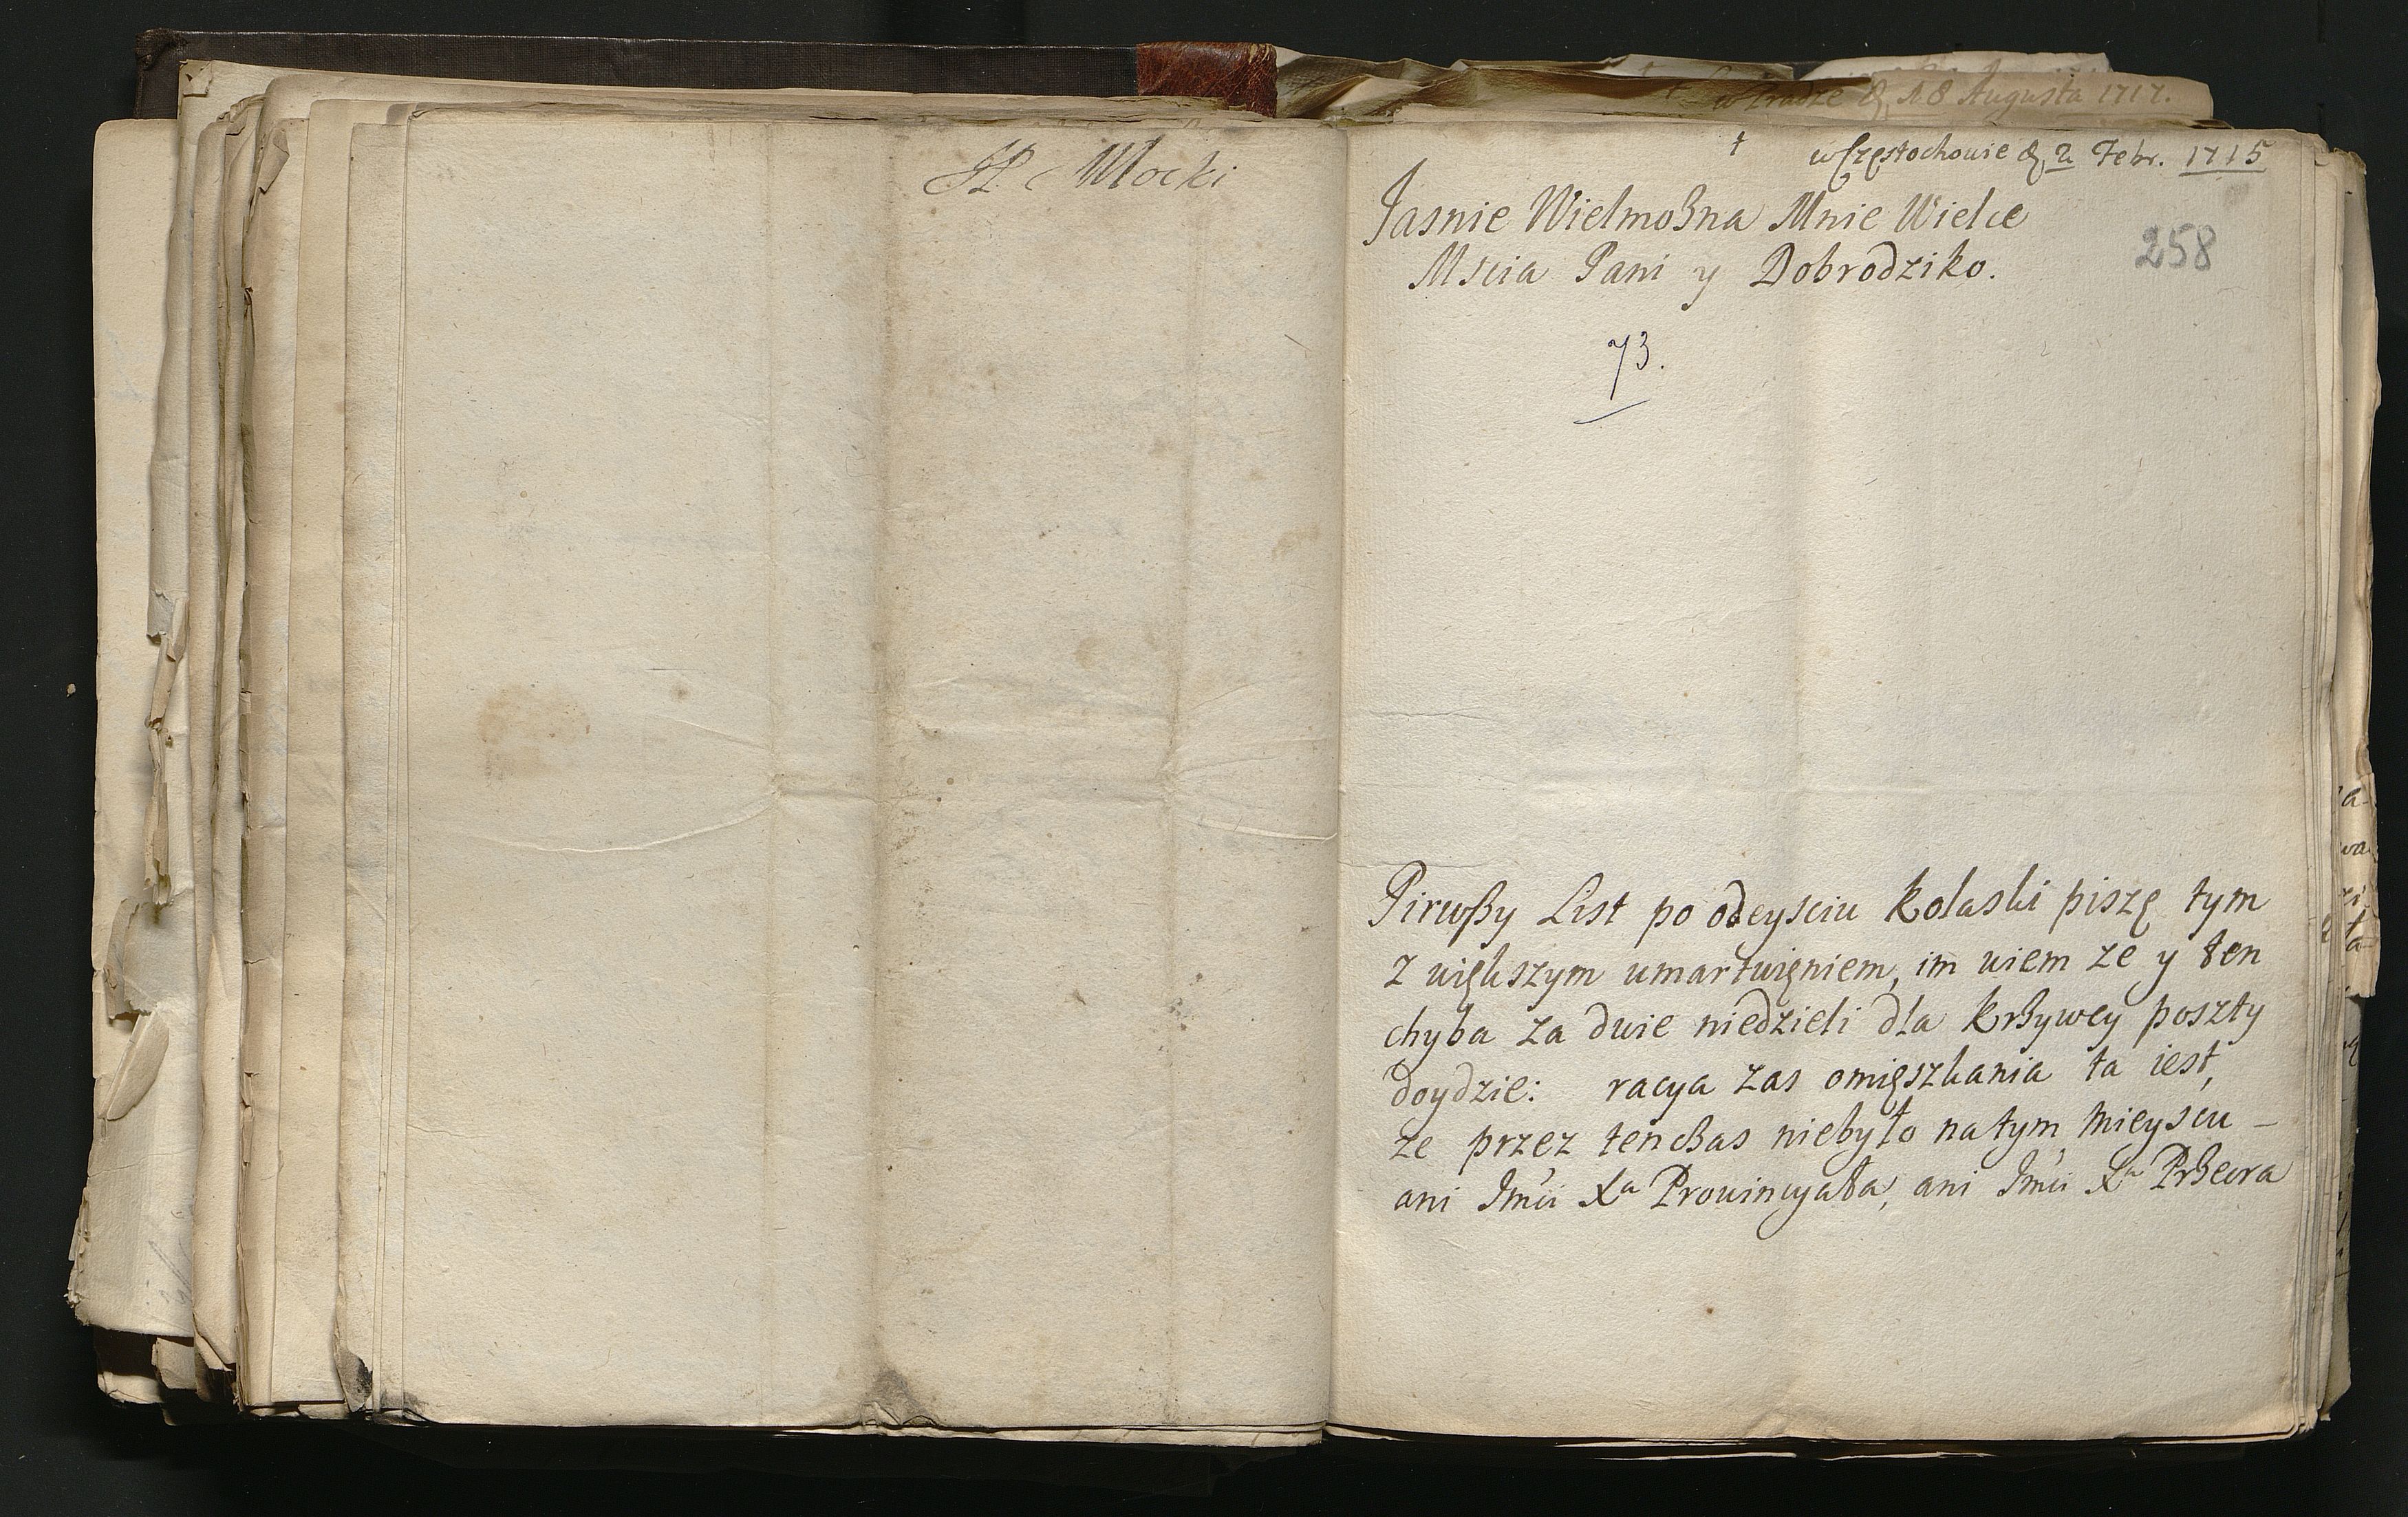 Młocki
w Pradze d. 18 Augusta 1717.
† w Częstochowie d. 2 Febr. 1715
Jasnie Wielmoßna Mnie Wielce
Mscia Pani y Dobrodziko.
258
73.
Pirwßy List po odeysciu kolaski piszę tym
z większym umartwięniem, im wiem ze y ten
chyba za dwie niedzieli dla krßywey poszty
doydzie: racya zas omięszkania ta iest,
ze przez tenczas niebyło natym mieyscu –
ani Jmci Xa Prowincyała, ani Jmci Xa Prßeora